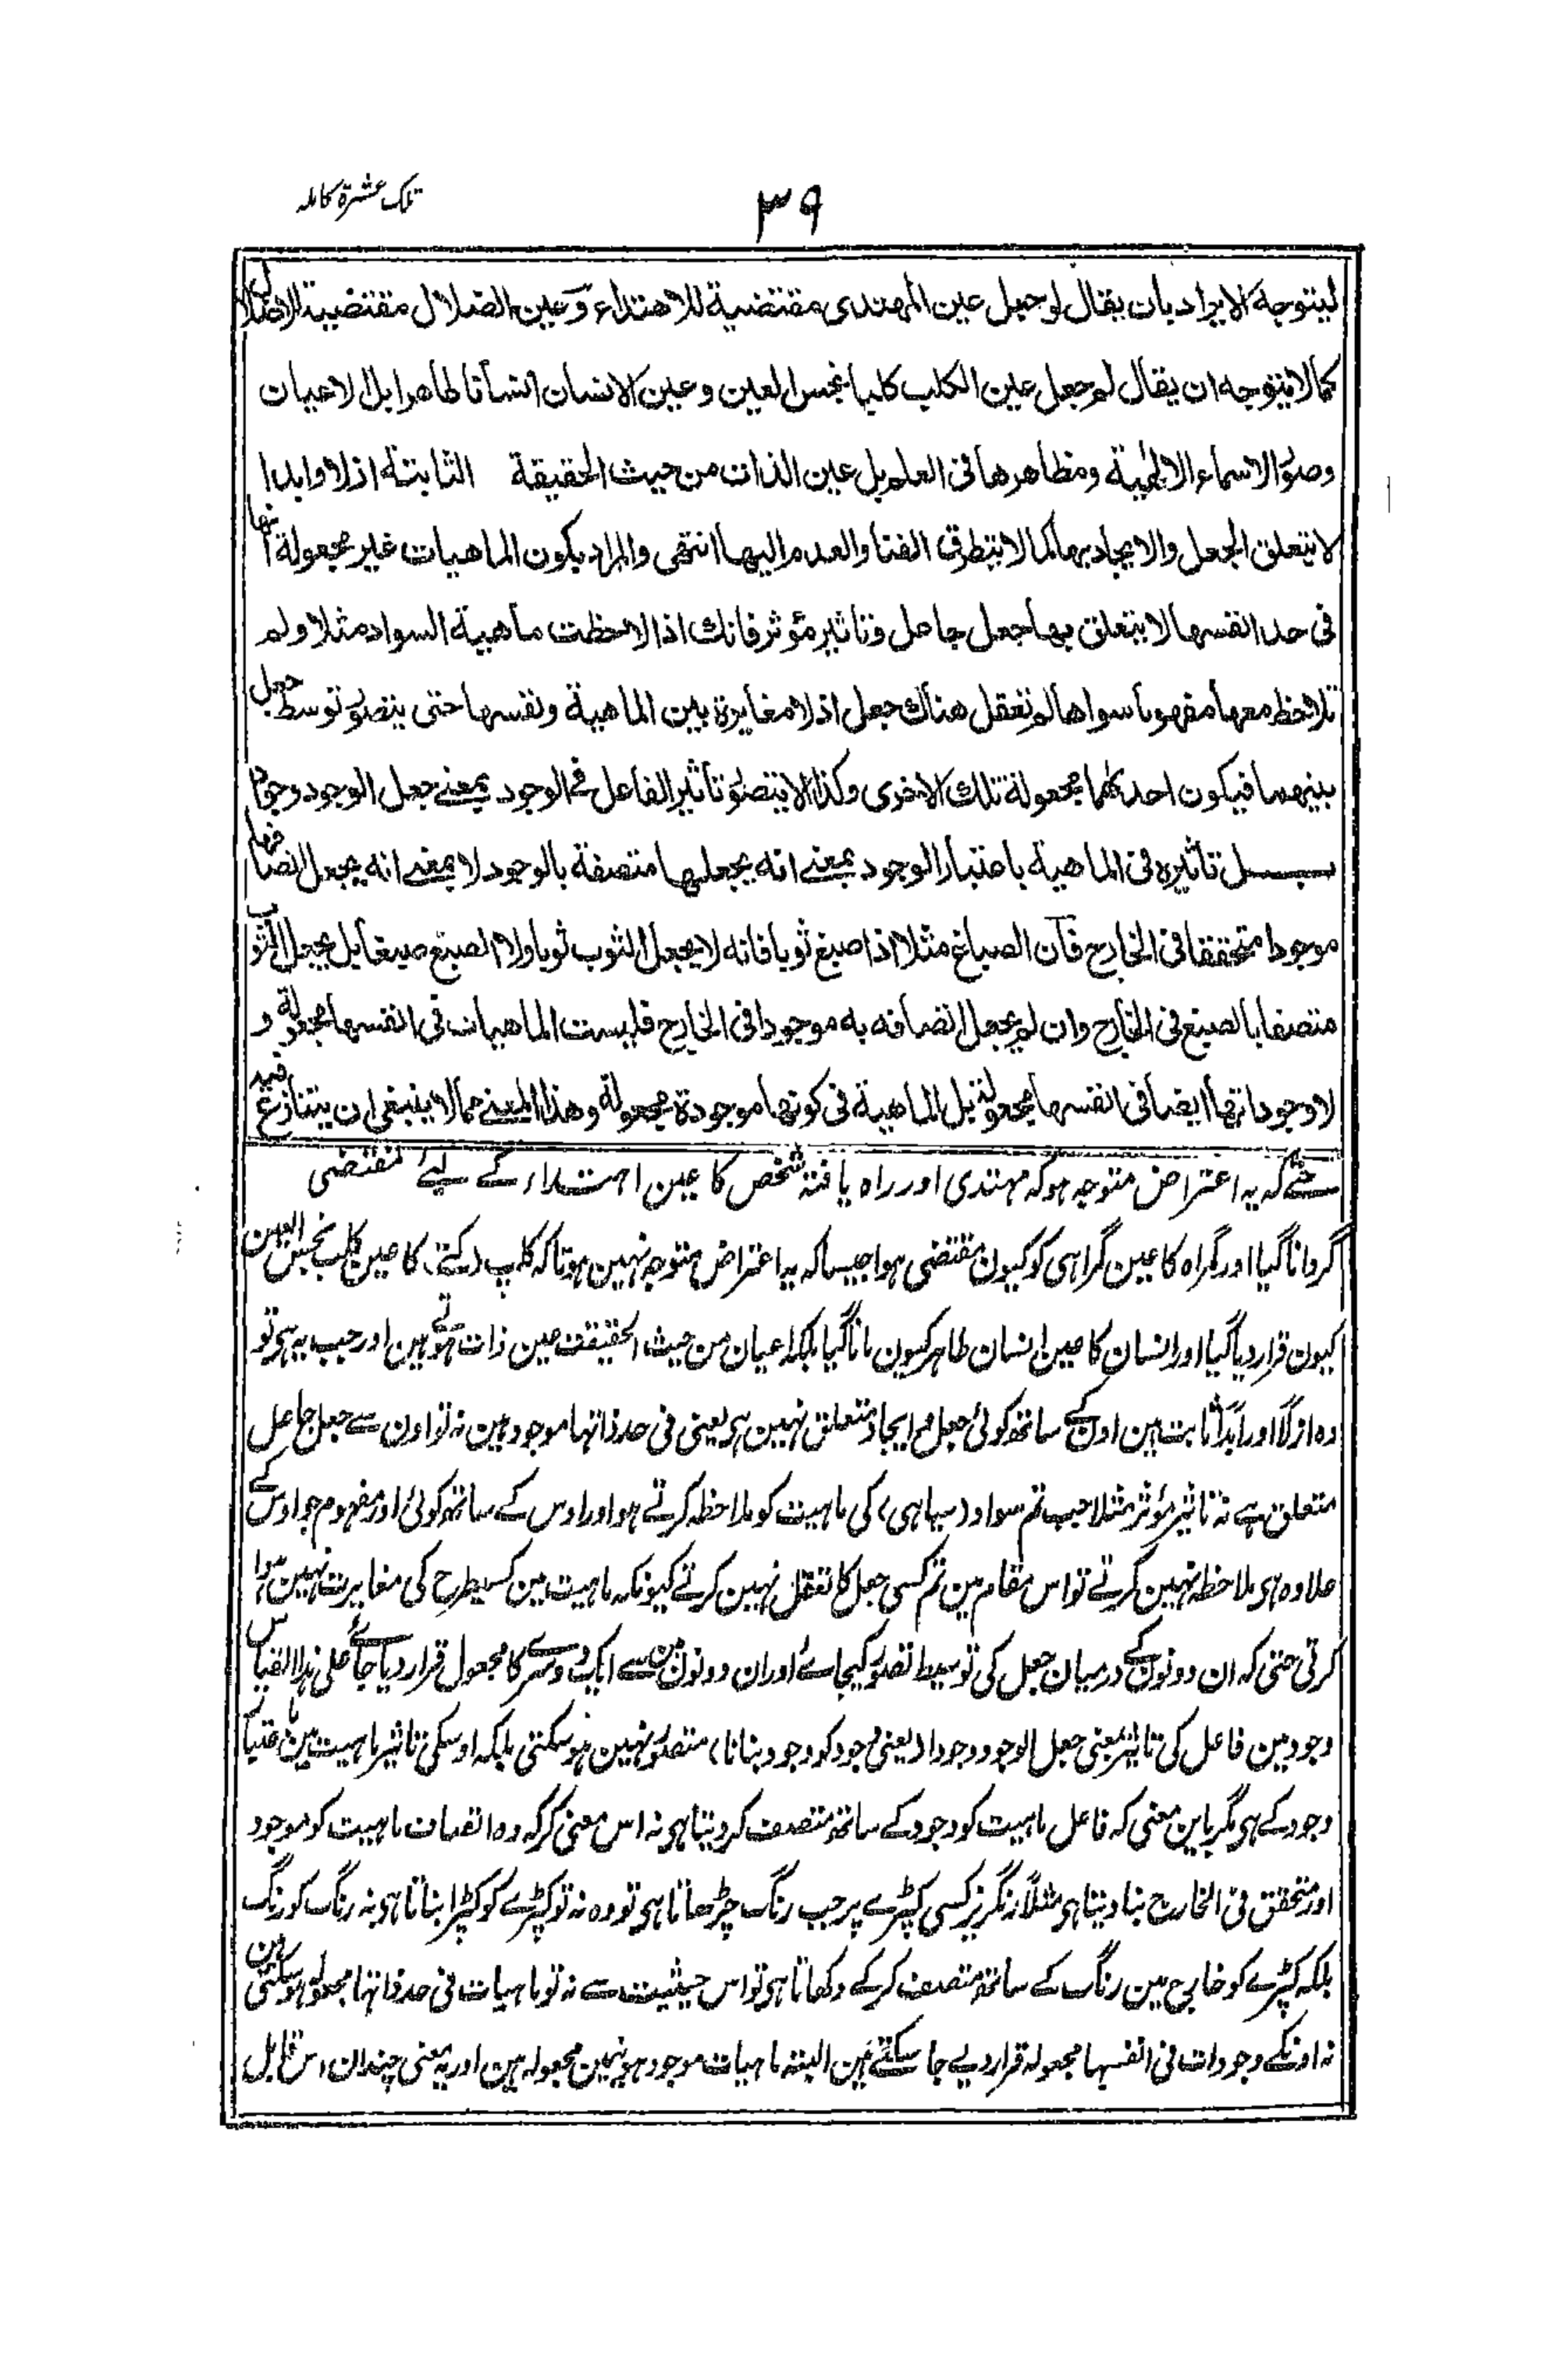 تلک عشرة کاملہ
۳۹
ليتوجه الايراد بان يقال لم جعل عين المهتدى مقتضية للاهتداء وعين الضلال مقتضيية للاضلال
كما لا يتوجه ان يقال لم جعل عين الكلب كلبا نجس العين وعين الانسان انسانا طاهرا بل الاعيان
وصور الاسماء الالٰهية ومظاهرها فى العلم بل عين الذات من حيث الحقيقة الثابتة ازلا وابدا
لا يتعلق الجعل والايجاد بها كما لا يتطرق الفنا والعدم اليها انتهى والمراد بكون الماهيات غير مجعولة انها
فى حد انفسها لا يتعلق بها جعل جاعل وتاثير مؤثر فانك اذا لاحظت ماهية السواد مثلا ولم
تلاحظ معها مفهوما سواها لم تعقل هناك جعل اذ لا مغايرة بين الماهية ونفسها حتى يتصور توسط جعل
بينهما فيكون احداهما مجعولة تلك الاخرى وكذا لا يتصور تأثير الفاعل فى الوجود بمعنے جعل الوجود وجودا
بل تاثيره فى الماهية باعتبار الوجود بمعنے انه يجعلها متصفة بالوجود لا بمعنے انه يجعل اتصافها
موجودا متحققا فى الخارج فان الصباغ مثلا اذا صبغ ثوبا فانه لا يجعل الثوب ثوبا ولا الصبغ صبغا بل يجعل الثوب
متصفا بالصبغ فى الخارج وان لم يجعل اتصافه به موجودا فى الخارج فليست الماهيات فى انفسها مجعولة و
لا وجوداتها ايضا فى انفسها مجعولة بل الماهية فى كونها موجودة مجعولة وهذا المعنے مما لا ينبغى ان يتنازع فيه
حتے کہ یہ اعتراض متوجہ ہو کہ مہتدی اور راہ یافتہ شخص کا عین اہتداء کے لیے مقتضی
گردانا گیا اور گمراہ کا عین گمراہی کو کیون مقتضی ہوا جیسا کہ یہ اعتراض متوجہ نہین ہوتا کہ کلب (کتے) کا عین کلب نجس العین
کیون قرار دیا گیا اور انسان کا عین انسان طاہر کیون مانا گیا بلکہ اعیان من حیث الحقیقت عین ذات ہوتے ہین اور جب یہ ہی تو
وہ ازلًا اور ابدًا ثابت ہین اون کے ساتھ کوئی جعل و ایجاد متعلق نہین ہی یعنی فی حد ذاتہا موجود ہین نہ تو اون سے جعل جاعل
متعلق ہے نہ تاثیر مؤثر مثلا جب تم سواد (سیاہی) کی ماہیت کو ملاحظہ کرتے ہو اور اوس کے ساتھ کوئی اور مفہوم جو اوس کے
علاوہ ہی ملاحظہ نہین کرتے تو اس مقام مین تم کسی جعل کا تعقل نہین کرتے کیونکہ ماہیت مین کسیطرح کی مغایرت نہین ہوا
کرتی حتی کہ ان دونون کے درمیان جعل کی توسیط تصور کیجائے اور ان دونون مین سے ایک دوسرے کا مجعول قرار دیا جائے علی ہذا القیاس
وجود مین فاعل کی تاثیر بمعنی جعل الوجود وجودا (یعنی وجود کو وجود بنانا) متصور نہین ہو سکتی بلکہ اوسکی تاثیر ماہیت مین باعتبار
وجود کے ہی مگر باین معنی کہ فاعل ماہیت کو وجود کے ساتھ متصف کر دیتا ہی نہ اس معنی کر کہ وہ اتصاف ماہیت کو موجود
اور متحقق فی الخارج بنا دیتا ہی مثلًا رنگریز کسی کپڑے پر جب رنگ چڑھاتا ہی تو وہ نہ تو کپڑے کو کپڑا بناتا ہی نہ رنگ کو رنگ
بلکہ کپڑے کو خارج مین رنگ کے ساتھ متصف کر کے دکھاتا ہی تو اس حیثیت سے نہ تو ماہیات فی حد ذاتہا مجعول ہو سکتی ہین
نہ اونکے وجودات فی انفسہا مجعولہ قرار دیے جا سکتے ہین البتہ ماہیات موجود ہونیمین مجعولہ ہین اور یہ معنی چندان اس قابل